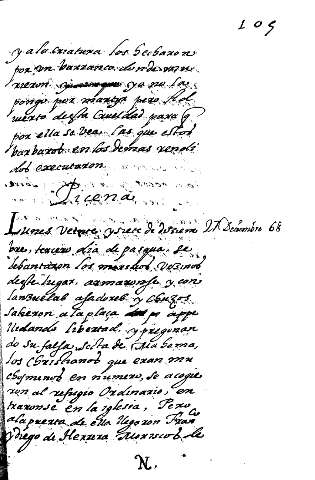 105
y a la criatura los hecharon
por un barranco donde mu
rieron y yo no la
pongo por martyr pero
esta crueldad para q
por ella se vea las que estos
barbaros en los demas
executaron
Picena
Lunes veinte y siete de disiem
27 Decembre 68
bre, tercero dia de pasqua. se
lebantaron los moriscos vezinos
deste lugar, armaronse y con
lansuelas asadores y chuzos
salieron a la plaça appe
llidando libertad y pregonan
do su falsa secta de Mahoma,
los christianos que eran mu
chos menos en numero, se acogie
ron al refugio ordinario, en
traronse en la iglesia, Pero
a la puerta de ella llegaron Franco
y diego de Herrera Moriscos de
N.